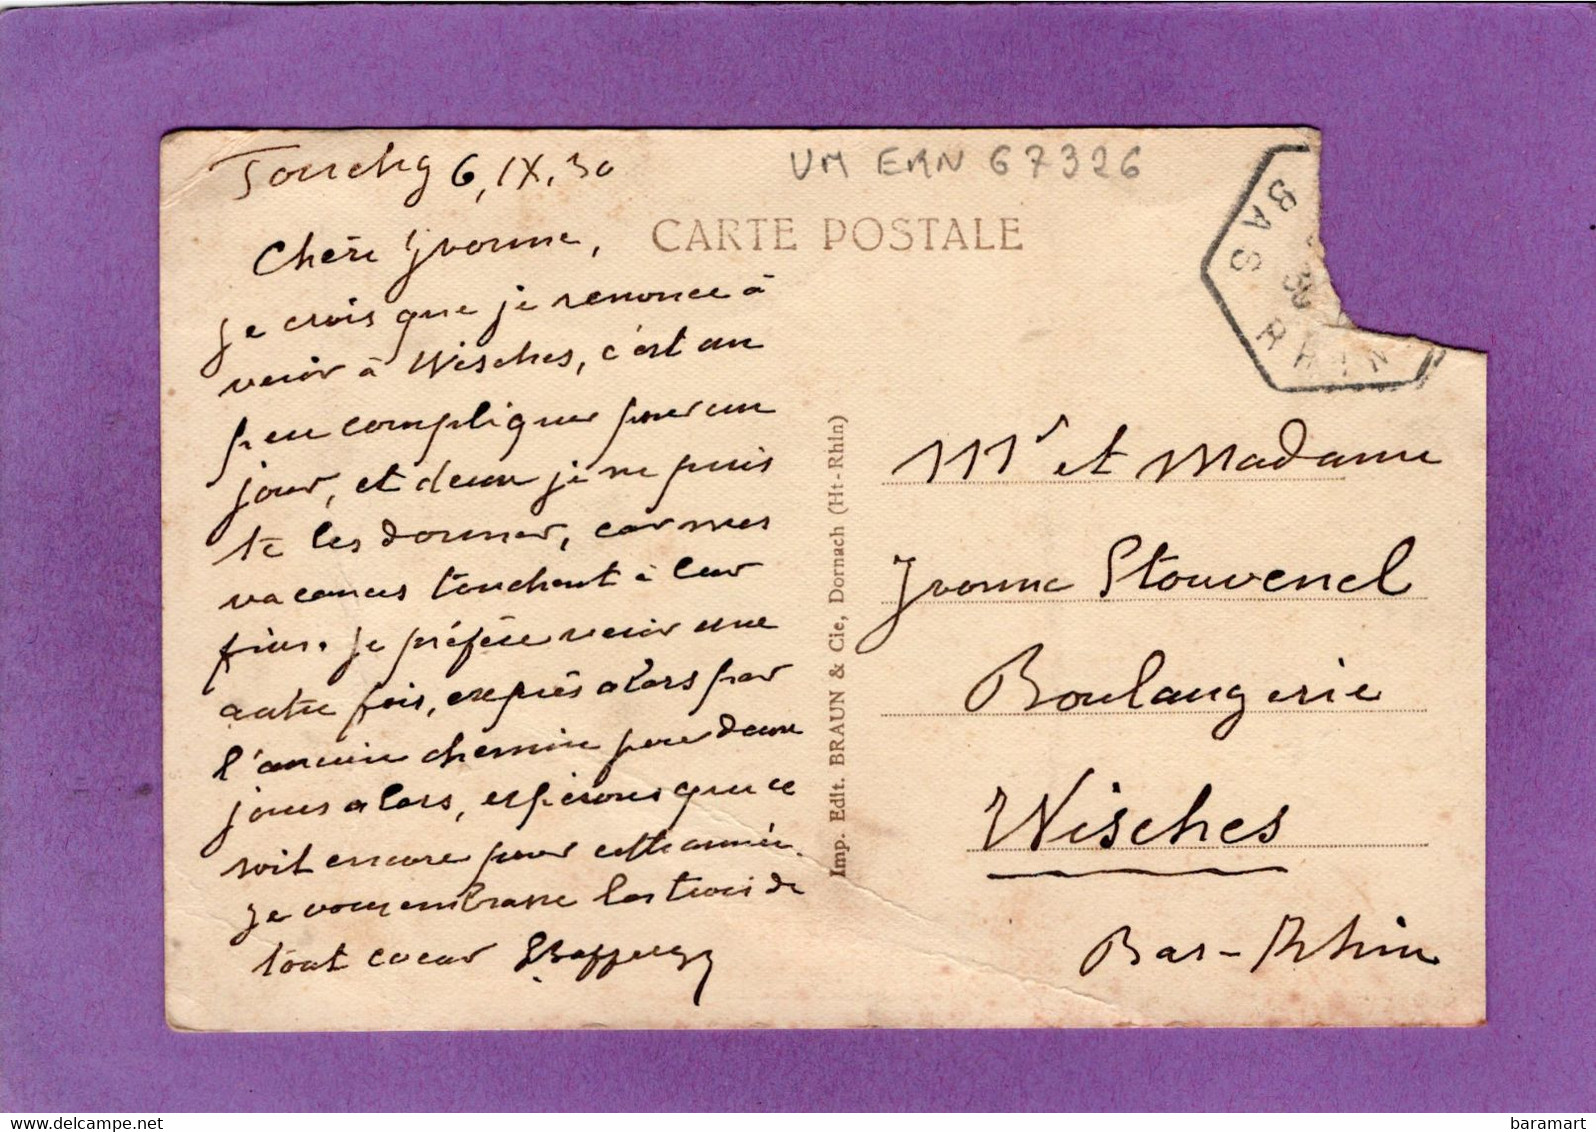 6, IX, 30
Chère Yvonne,
je crois que je renonce à
venir à Wisches, c'est un
peu compliquer pour un
jour, et deux je ne puis
te les donner, car mes
vacances touchent à leur
fin. Je préfère venir une
autre fois, exprès alors par
l'ancien chemin pour deux
jours alors, espérons que ce
soit encore pour cette année.
Je vous embrasse les trois de
tout coeur
UM ERN 67326
CARTE POSTALE
BAS RHIN
30
Imp. Edit. BRAUN & Cie, Dornach (Ht-Rhin)
Mr et Madame
Yvonne Stouvenel
Boulangerie
Wisches
Bas-Rhin
baramart